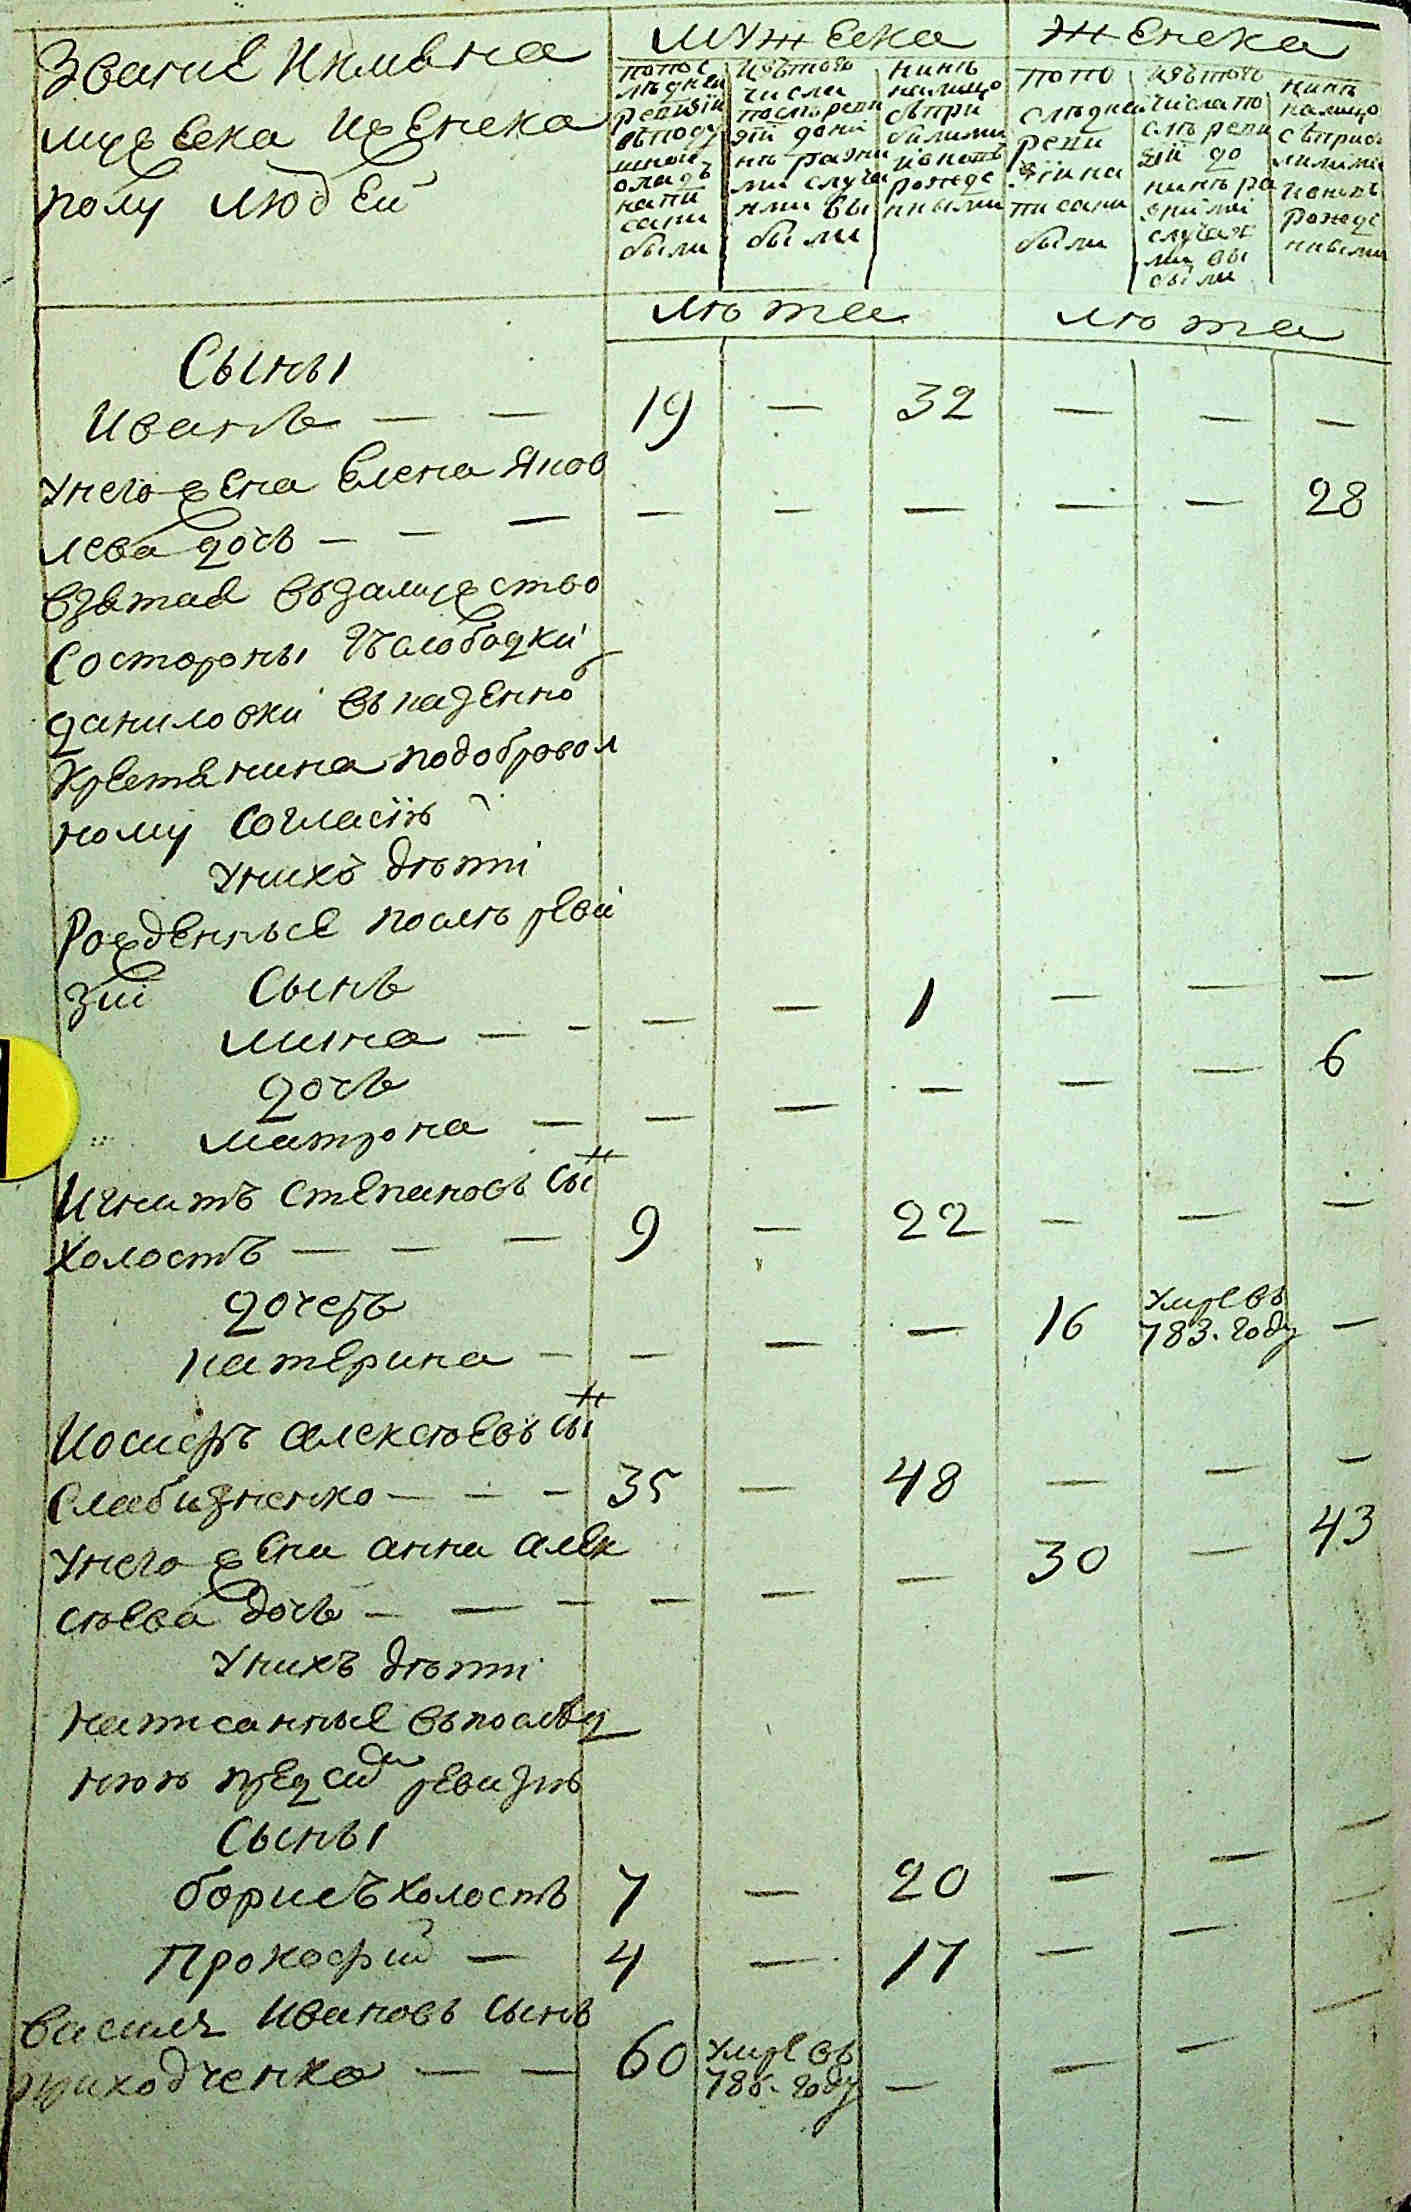 Званıе Иимѣна
мужеска Иженска
полу людей
мужеска
женска
попос
лѣдней
ревизiи
въподу
шной
окладъ
напи
сани
были
изътого
числа
послѣреви
зiи дони
нѣ разни
ми случа
ями вы
были
нинѣ
налицо
сѣпри
билими
иновъ
рожде
нными
попо
слѣдней
реви
зiи на
писани
были
изътого
числа по
слѣ реви
зiи до
нинѣ ра
зними
случая
ми вы
были
нинѣ
налицо
сѣприб
илими
иновъ
рожде
нными
лѣта
лѣта
Сыны
Иванъ — — 19 — 32 — — —
Унего жена Елена Яков
лева дочь — — — — — — — — 28
взятая взамужство
Состороны Ислободки
даниловки вказенно
Крестянина подобровол
ному согласiю
Унихъ дѣти
Рожденные послѣ реви
зiи Сынъ
мина — — — — 1 — — —
дочь
матрона — — — — — — 6
Игнатъ степановъ сы н
холостъ — — — 9 — 22 — — —
дочерь
катерина — — — — 16 умре въ 783. году —
Иосифъ алексѣевъ сы н
Слабизненко — — — 35 — 48 — — —
Унего жена анна алек
сѣева дочь — — — — — — 30 — 43
Унихъ дѣти
написанные въпослѣд
нюю предсимъ ревизiю
Сыны
борисъ холостъ 7 — 20 — — —
Прокофий — 4 — 17 — — —
василя Ивановъ сынъ
приходченко — — 60 умре въ 786. году — — — —